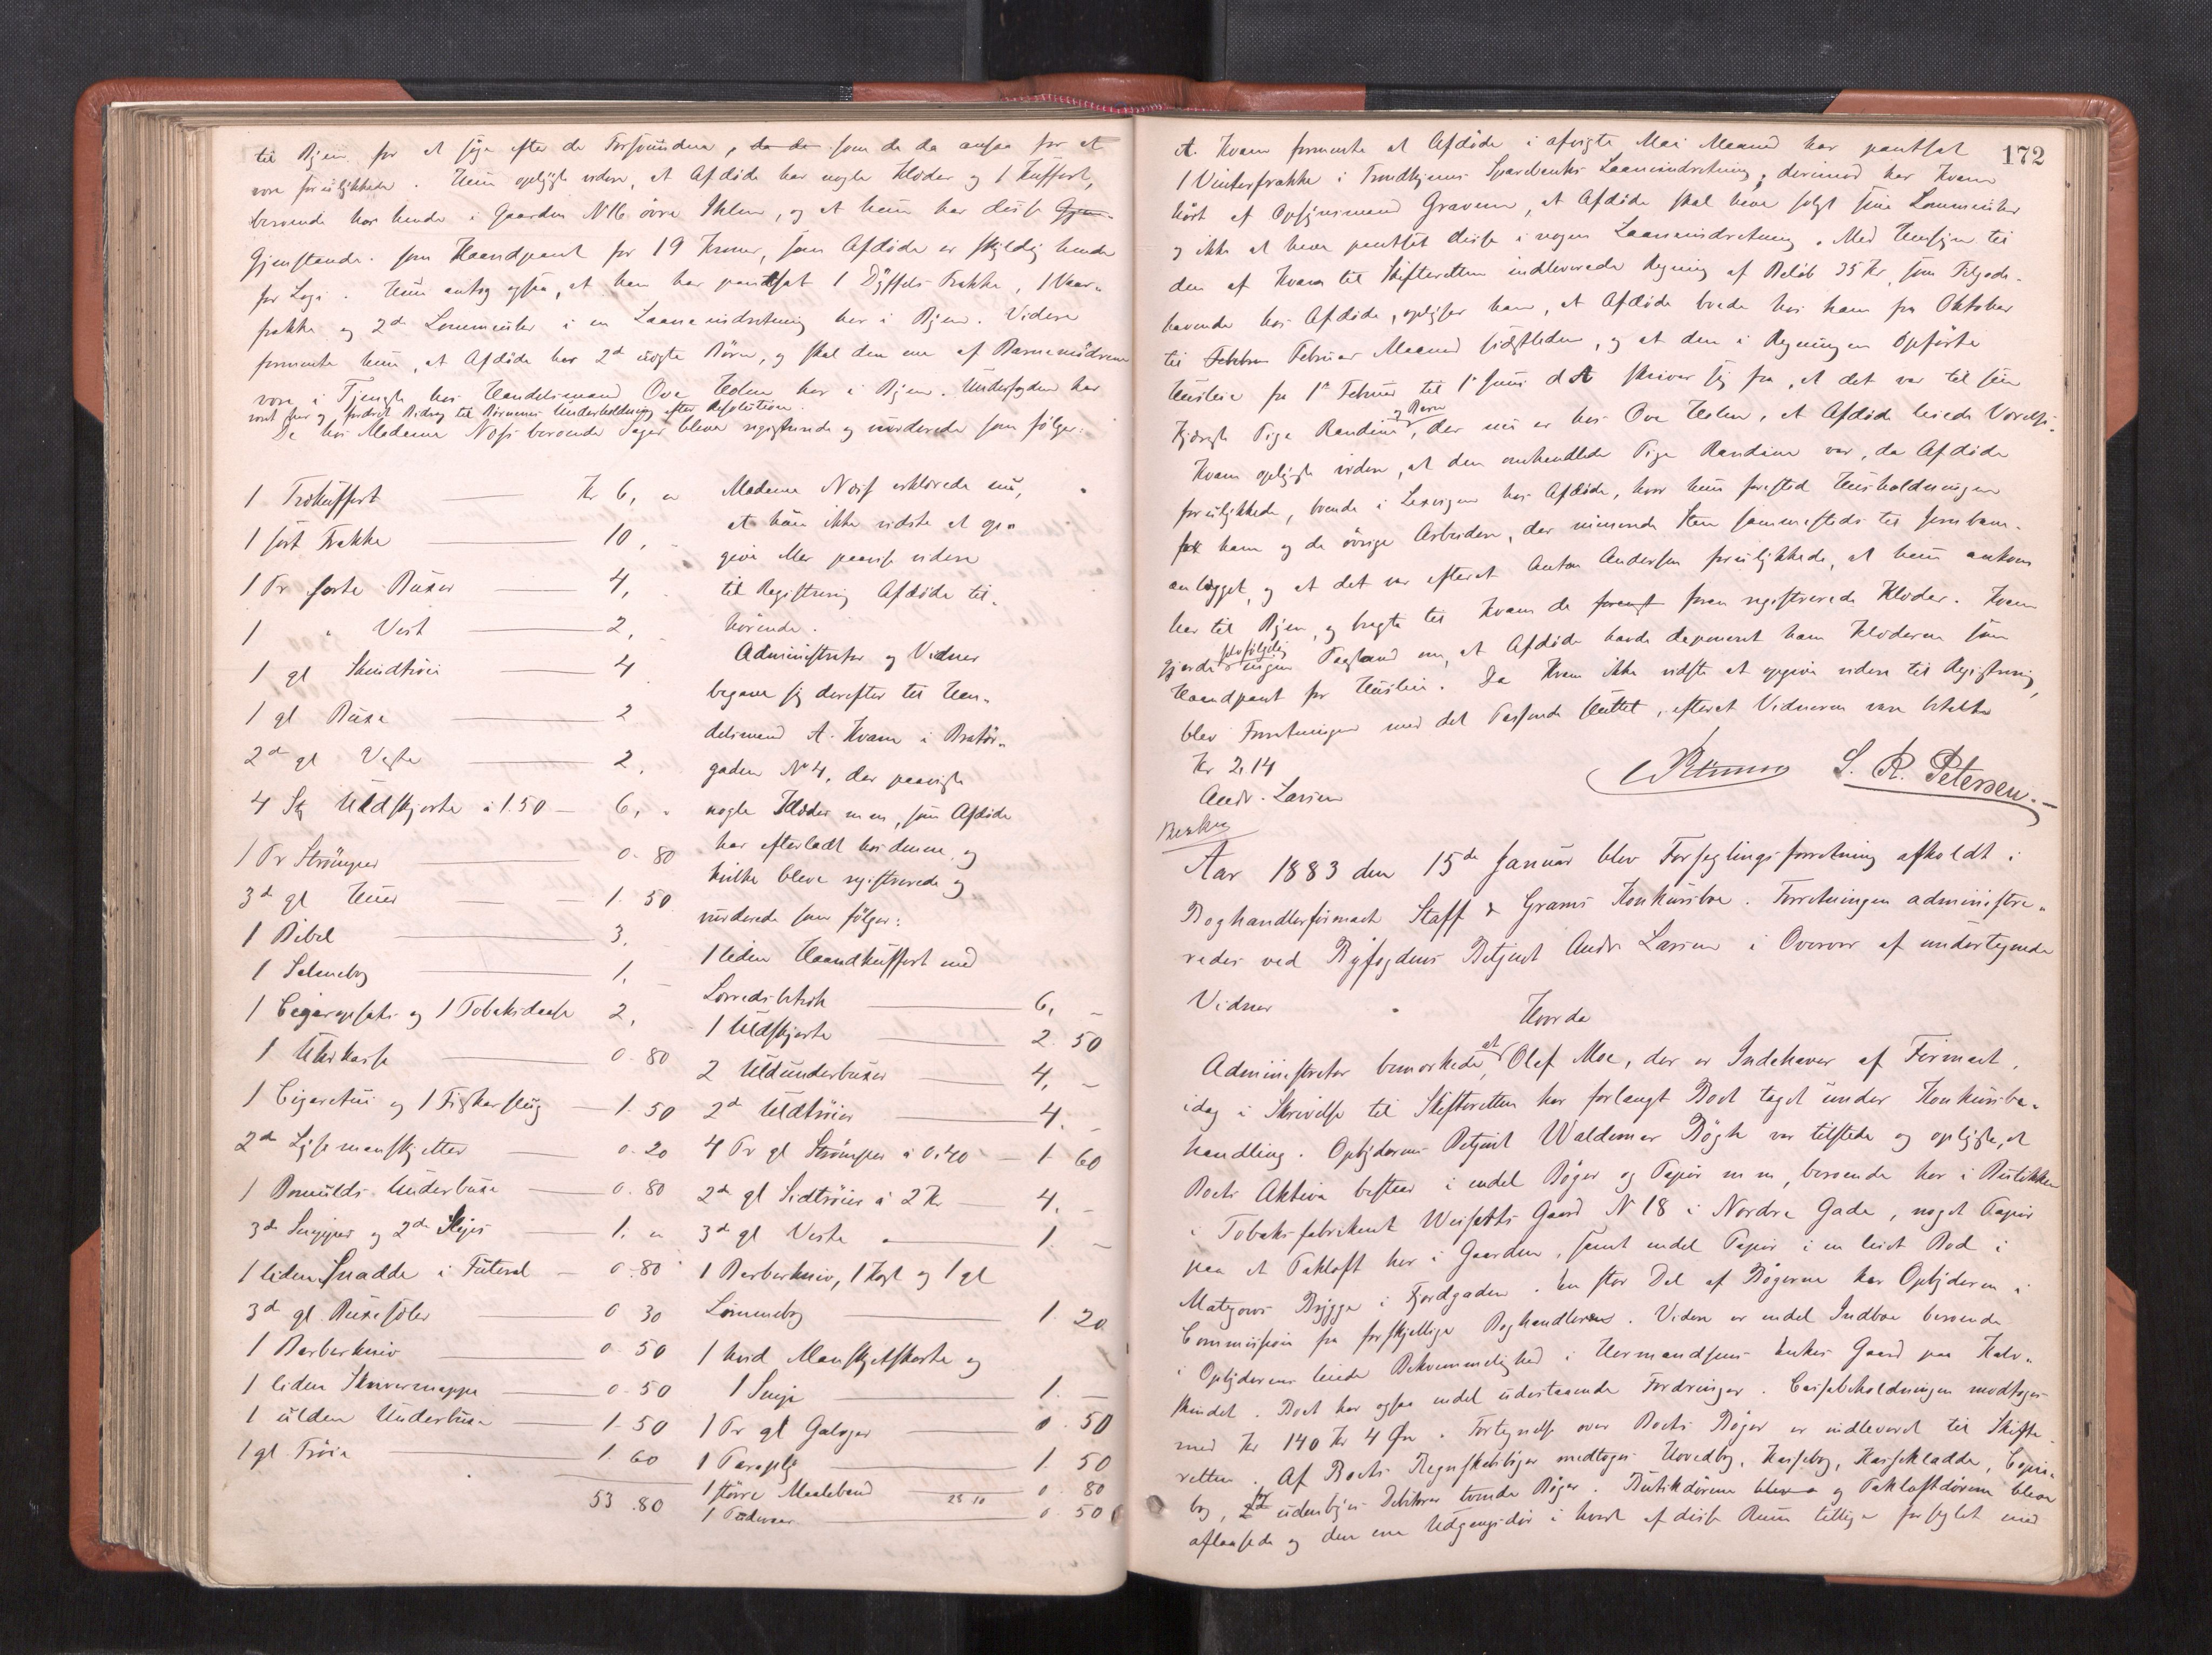 til Byen for at søge efter de Forsvundne, da de som de da ansaa for at
være forulykkede. Hun oplyste videre, at Afdøde har nogle Klæder og 1 Kuffert,
beroende hos hende i Gaarden N 16 øvre Ihlen, og at hun har disse Gjen-
Gjenstande som Haandpant for 19 Kroner, som Afdøde er skyldig hende
for Logi. Hun antog ogsaa, at han har pantsat 1 Dyffels Frakke, 1 Vaar-
frakke og 2de Lommeuhr i en Laaneindretning her i Byen. Videre
formente hun, at Afdøde har 2de uægte Børn, og skal den ene af Barnemødrene
være i Tjeneste hos Handelsmand Ove Holm her i Byen. Underfogden har
været her og fordret Bidrag til Børnenes Underholdning efter Resolution.
De hos Madame Næss beroende Sager bleve registrerede og vurderede som følger:
1 Trækuffert Kr 6, "
1 sort Frakke 10, -
1 Pr sorte Buxer 4, -
1 " Vest 2, -
1 gl Skindtrøie 4
1 gl Buxe 2
2de gl Veste 2,
4 Stk Uldskjorte à 1.50 - 6, "
1 Pr Strømper 0. 80
3de gl Huer 1. 50
1 Bibel 3, -
1 Salmebog 1, -
1 Cigaropsats og 1 Tobaksdaase 2,
1 Uhrkasse 0. 80
1 Cigaretui og 1 Fiskersnøre 1. 50
2de Lyse manskjetter 0. 20
1 Bomulds Underbuxe 0. 80
3de Snipper og 2de Slips 1. "
1 liden Snadde i Futeral 0. 80
3de gl. Buxeseler 0 30
1 Barberkniv 0. 50
1 liden Skrivermappe 0. 50
1 ulden Underbuxe 1. 50
1 gl. Trøie 1. 60
53 .80
Madame Næss erklærede nu,
at hun ikke vidste at op-
give eller paavise videre
til Registrering Afdøde til-
hørende.
Administrator og Vidner
begave sig derefter til Han-
delsmand A. Kvam i Bratør-
gaden N 4, der paaviste
nogle Klæder m m, som Afdøde
har efterladt hos denne, og
hvilke bleve registrerede og
vurderede som følger:
1 liden Haandkuffert med
Lærredsbetræk 6, -
1 Uldskjorte 2. 50
2 Uldunderbuxer 4, -
2de Uldtrøier 4. -
4 Pr gl Strømper à 0.40 - 1. 60
2de gl Sidtrøier à 2 Kr 4. -
3de gl Veste 1. -
1 Barberkniv, 1 Kost og 1 gl
Lommebog 1. 20
1 hvid Manskjetskjorte og
1 Snip 1. -
1 Pr gl Galoger 0. 50
1 Paraply 1. 50
1 større Maalebaand 28 10 0. 80
1 0. 50
172
A. Kvam formente at Afdøde i afvigte Mai Maaned har pantsat
1 Vinterfrakke i Trondhjems Sparebanks Laaneindretning, derimod har Kvam
hørt af Opsynsmand Graven, at Afdøde skal have solgt sine Lommeuhr
og ikke at have pantsat disse i nogen Laaneindretning. Med Hensyn til
den af Kvam til Skifteretten indleverede Regning af Beløb 35 Kr, som Tilgode-
havende hos Afdøde, oplyser han, at Afdøde boede hos ham fra Oktober
til Febebru Februar Maaned sidstleden, og at den i Regningen opførte
Husleie fra 1ste Februar til 1ste Juni d A skriver sig fra, at det var til sin
Kjæreste Pige Randine og Barn, der nu er hos Ove Holm, at Afdøde leiede Værelse.
Kvam oplyste videre, at den omhandlede Pige Randine var, da Afdøde
forulykkede, boende i Lexvigen hos Afdøde, hvor hun forestod Husholdningen
for ham og de øvrige Arbeidere, der minerede Sten sammesteds til Jernbane-
anlægget, og at det var efterat Anton Andersen forulykkede, at hun ankom
her til Byen, og bragte til Kvam de forangst foran registrerede Klæder. Kvam
gjorde selvfølgelig ingen Paastand om, at Afdøde havde deponeret ham Klæderne som
Haandpant for Husleie. Da Kvam ikke vidste at opgive videre til Registrering,
blev Forretningen med det Passerede sluttet, efterat Vidnerne vare betalte
Kr 2,14
Andr. Larsen
S. R. Petersen.-
Aar 1883 den 15de Januar blev Forseglingsforretning afholdt i
Boghandlerfirmaet Staff & Grams Konkursbo. Forretningen administre-
redes ved Byfogdens Betjent Andr Larsen i Overvær af undertegnede
Vidner
Hvorda
Administrator bemærkede, at Olaf Moe, der er Indehaver af Firmaet,
idag i Skrivelse til Skifteretten har forlangt Boet taget under Konkursbe-
handling. Opbyderens Betjent Waldemar Bøgh var tilstede og oplyste, at
Boets Aktiva bestaar i endel Bøger og Papir m m, beroende her i Butikken
i Tobaksfabrikant Weisæths Gaard N 18 i Nordre Gade, noget Papir
paa et Pakloft her i Gaarden, samt endel Papir i en leiet Bod i
Matzows Brygge i Fjordgaden. En stor Del af Bøgerne har Opbyderen i
Commission fra forskjellige Boghandlere. Videre er endel Indbo beroende
i Opbyderens leiede Bekvemmelighed i Hermandsens Enkes Gaard paa Kalv-
skindet. Boet har ogsaa endel udestaaende Fordringer. Cassabeholdningen modtoges
med Kr 140 Kr 4 Øre. Fortegnelse over Boets Bøger er indleveret til Skifte-
retten. Af Boets Regnskabsbøger medtoges Hovedbog, Kassebog, Kassekladde, Copie-
bog, udenbyes Debitorer tvende Bøger. Butikdørene bleve og Pakloftdørene bleve
aflaasede og den ene Udgangsdør i hvert af disse Rum tillige forseglet med